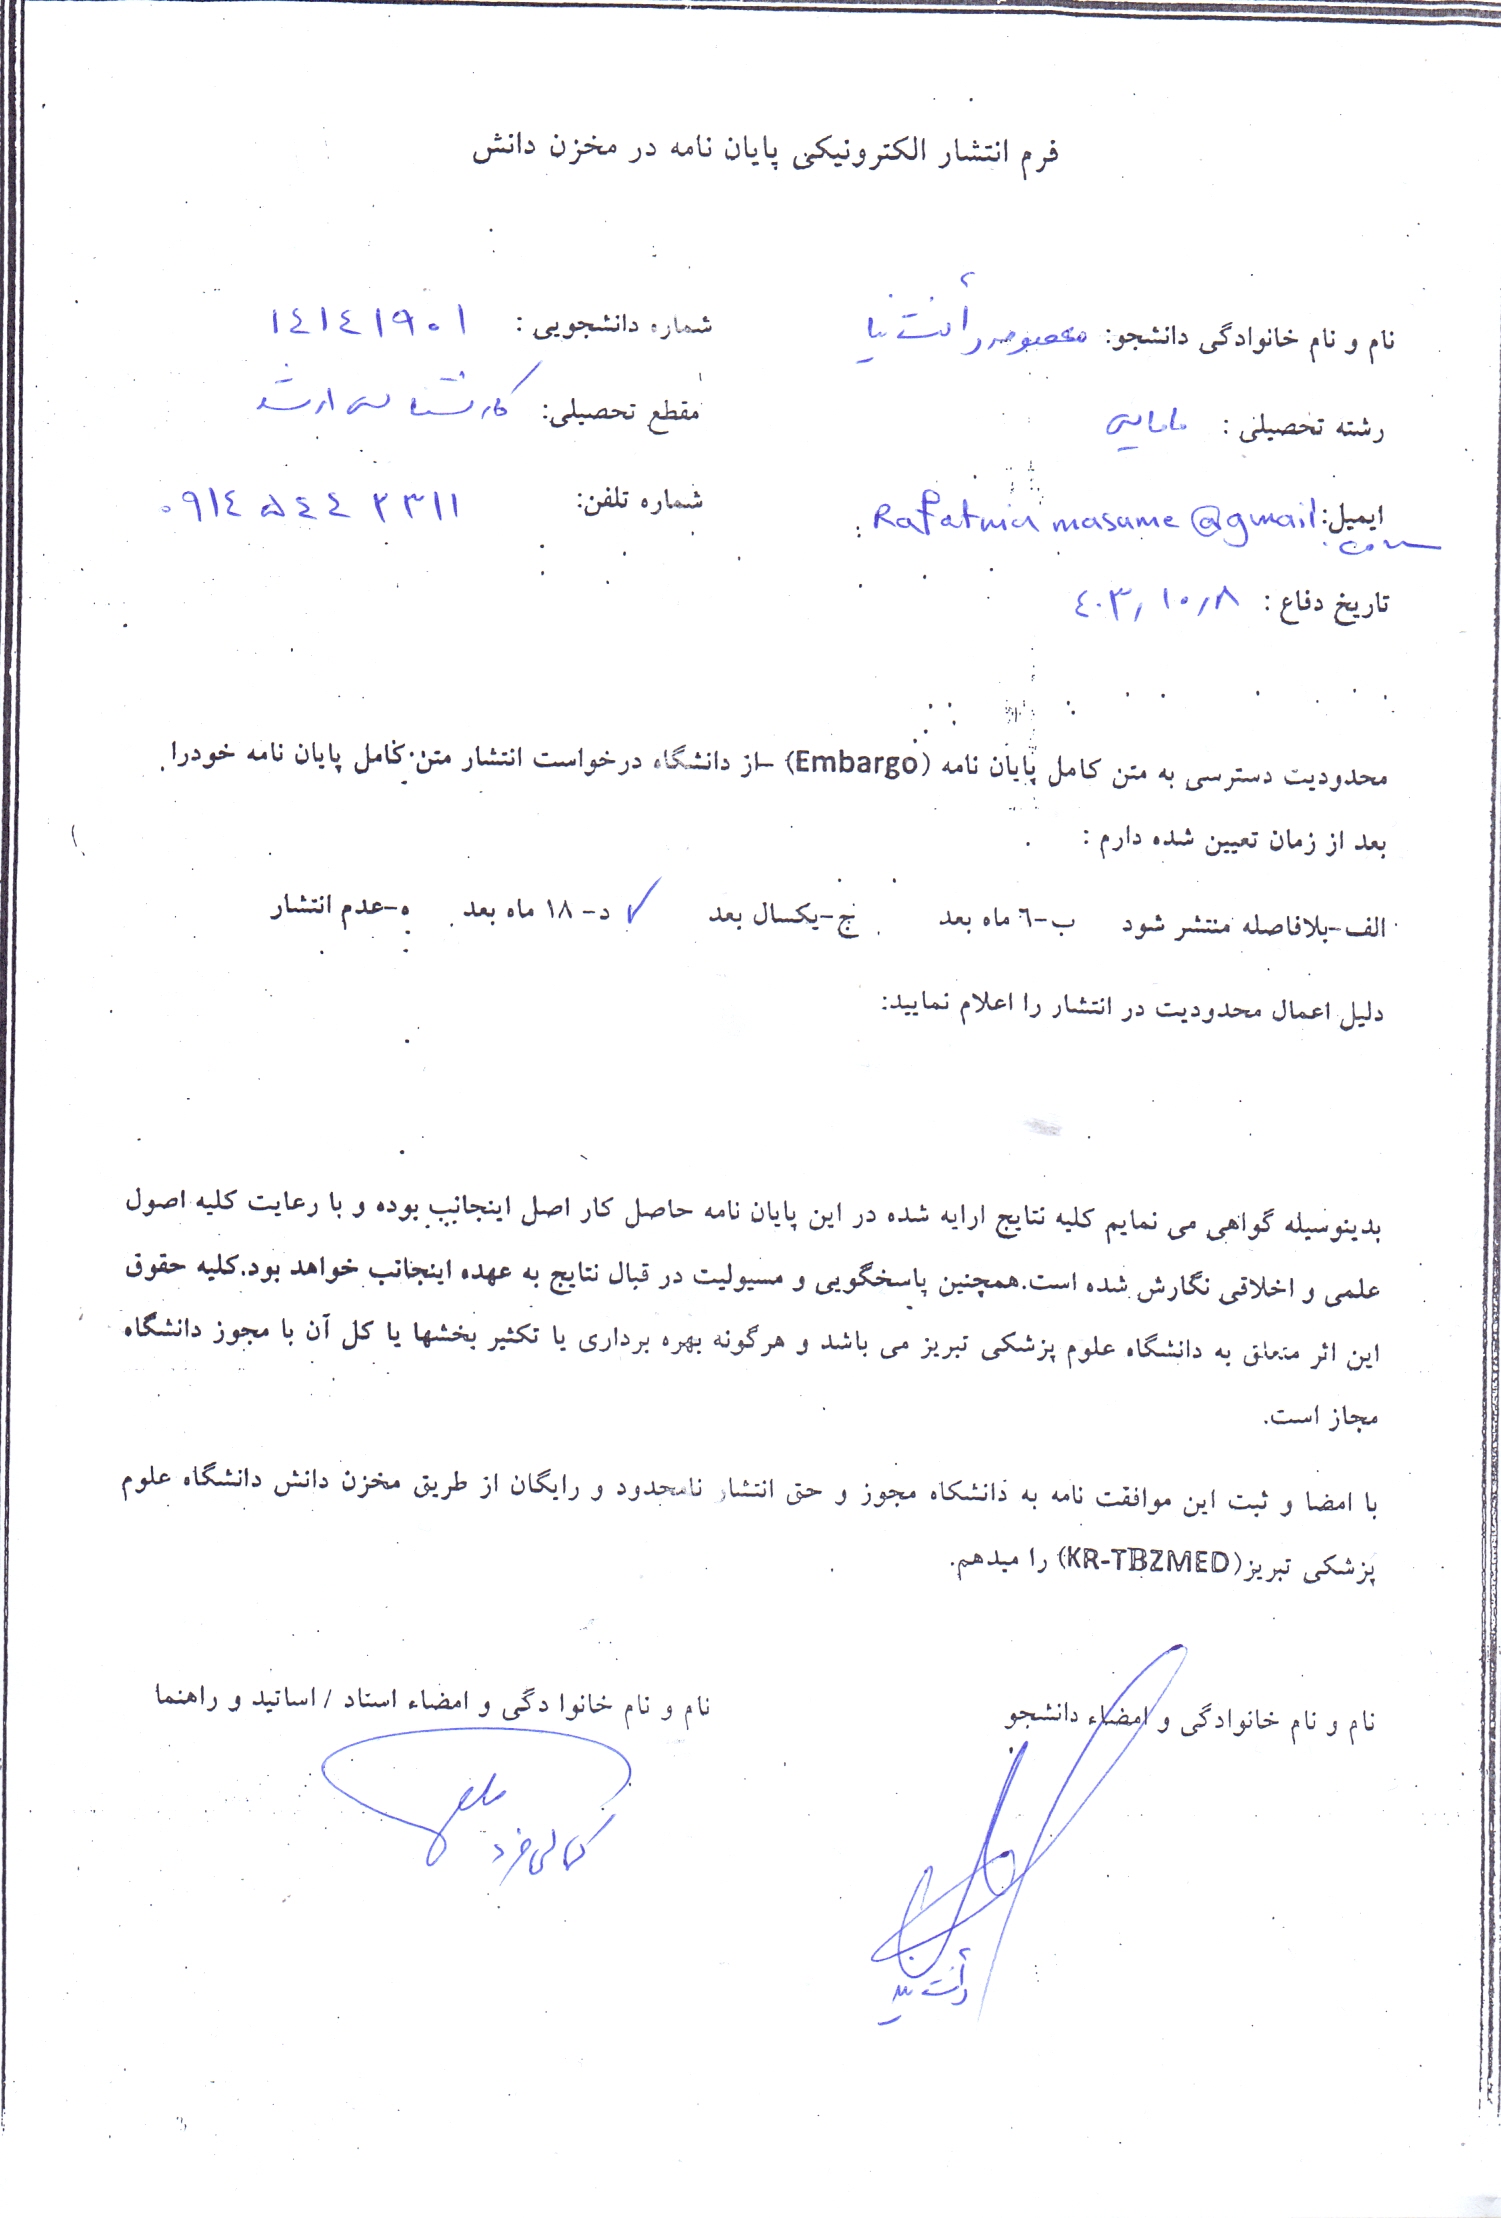 فرم انتشار الکترونیکی پایان نامه در مخزن دانش
نام و نام خانوادگی دانشجو: معصومه رأفت نیا شماره دانشجویی : ١٤١٤١٩٠١
رشته تحصیلی : مامایی مقطع تحصیلی: کارشناسی ارشد
ایمیل: Rafatnia masame @gmail .com شماره تلفن: ٠٩١٤ ٥٤٤ ٢٣١١
تاریخ دفاع : ٤٠٣,١٠,٨
محدودیت دسترسی به متن کامل پایان نامه (Embargo) –از دانشگاه درخواست انتشار متن کامل پایان نامه خودرا
بعد از زمان تعیین شده دارم :
الف-بلافاصله منتشر شود ب-٦ ماه بعد ج-یکسال بعد ✓ د- ١٨ ماه بعد ه-عدم انتشار
دلیل اعمال محدودیت در انتشار را اعلام نمایید:
بدینوسیله گواهی می نمایم کلیه نتایج ارایه شده در این پایان نامه حاصل کار اصل اینجانب بوده و با رعایت کلیه اصول
علمی و اخلاقی نگارش شده است.همچنین پاسخگویی و مسیولیت در قبال نتایج به عهده اینجانب خواهد بود.کلیه حقوق
این اثر متعلق به دانشگاه علوم پزشکی تبریز می باشد و هرگونه بهره برداری یا تکثیر بخشها یا کل آن با مجوز دانشگاه
مجاز است.
با امضا و ثبت این موافقت نامه به دانشکاه مجوز و حق انتشار نامحدود و رایگان از طریق مخزن دانش دانشگاه علوم
پزشکی تبریز(KR-TBZMED) را میدهم.
نام و نام خانوادگی و امضاء دانشجو نام و نام خانوا دگی و امضاء استاد / اساتید و راهنما
کمالی فرد
رأفت نیا